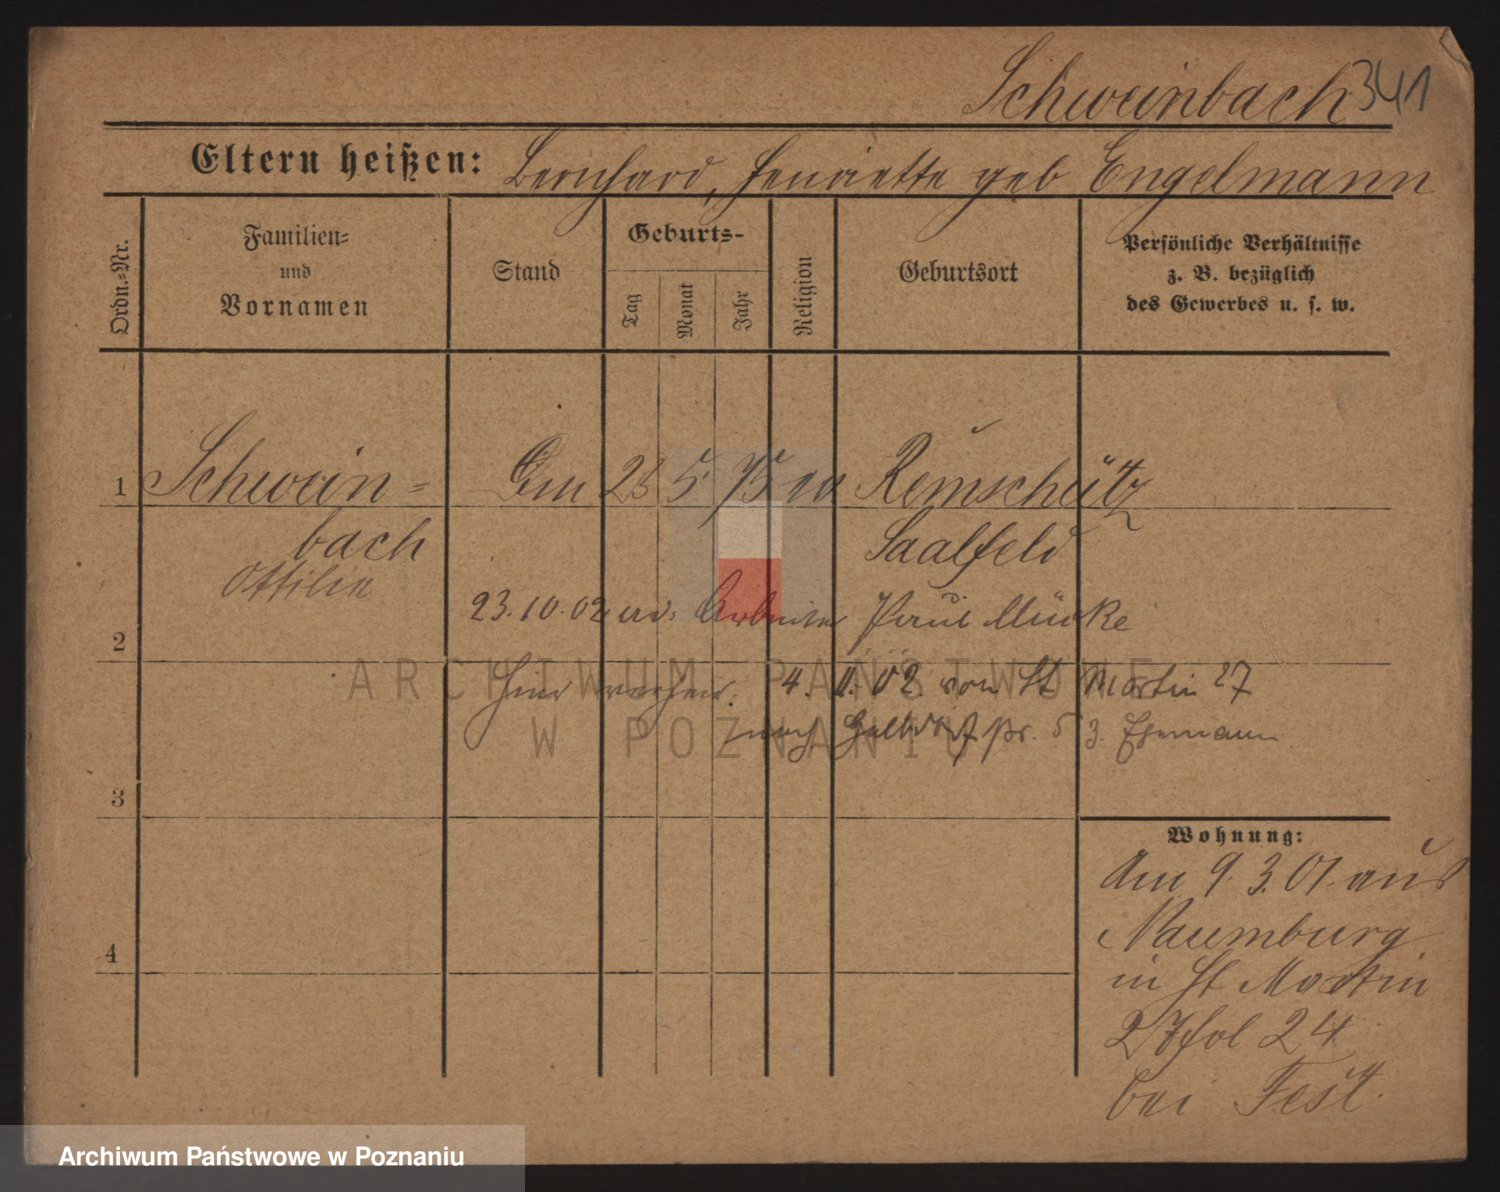 Schweinbach 341
Eltern heißen: Bernhard, Henriette geb Engelmann
Ordn.-Nr.
Familien-
und
Vornamen
Stand
Geburts-
Tag
Monat
Jahr
Religion
Geburtsort
Persönliche Verhältnisse
z. B. bezüglich
des Gewerbes u. s. w.
1 Schwein- 25 5 75 Remschütz
bach Saalfeld
Ottilie
23.10.02 Arbeiter Paul Mücke
2
4. 02 von St Martin 27
nach pr. 5 z. Ehemann
3
Wohnung:
Am 9.3.01 aus
Naumburg
in St Martin
27 fol 24
bei Fest.
4
ARCHIWUM PAŃSTWOWE
W POZNANIU
Archiwum Państwowe w Poznaniu